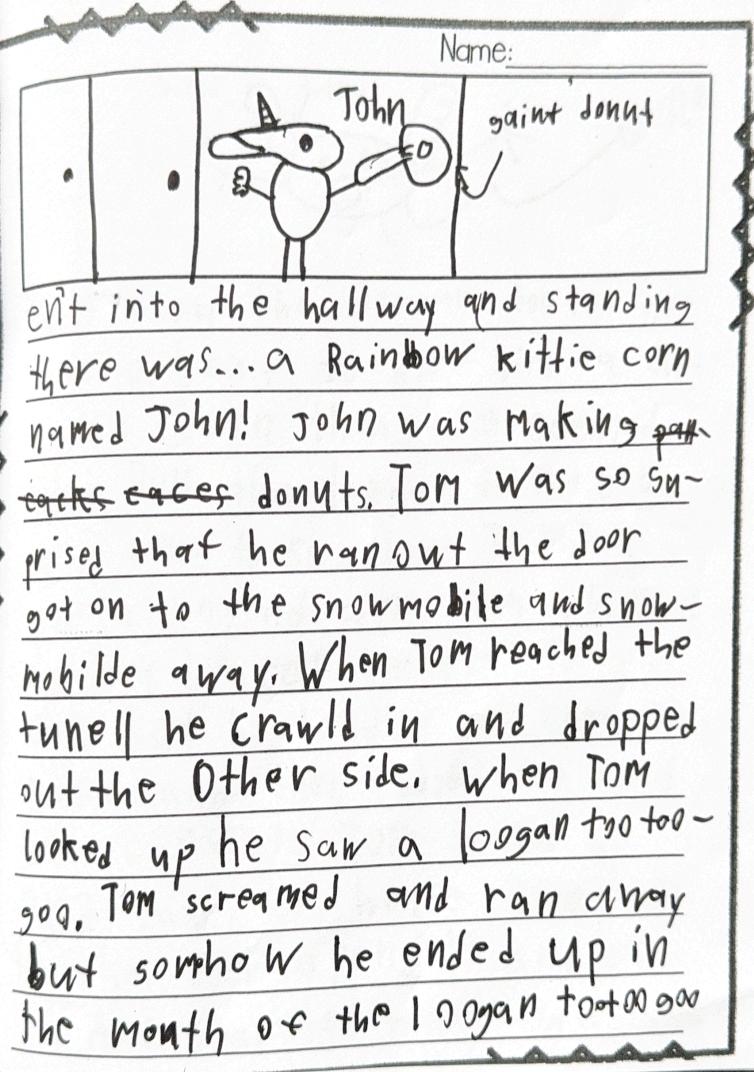 Name:
John
gaint donut
ent into the hallway and standing
there was... a Rainbow kittie corn
named John! John was making pan-
cacks caces donuts. Tom was so su-
prised that he ran out the door
got on to the snowmobile and snow-
mobilde away. When Tom reached the
tunell he crawld in and dropped
out the Other side. When Tom
looked up he saw a loogan too too-
goo. Tom screamed and ran away
but somhow he ended up in
the mouth of the loogan tootoogoo